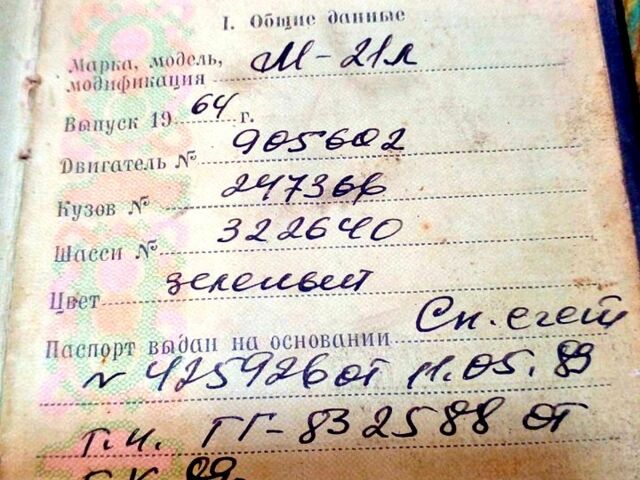 I. Общие данные
Марка, модель, М-21л
модификация
Выпуск 1964 г.
Двигатель № 905602
Кузов № 247366
Шасси № 322640
Цвет зеленый
Паспорт выдан на основании Сп. счет
№ 425926 от 11.05.89
ГГ-832588 от
89